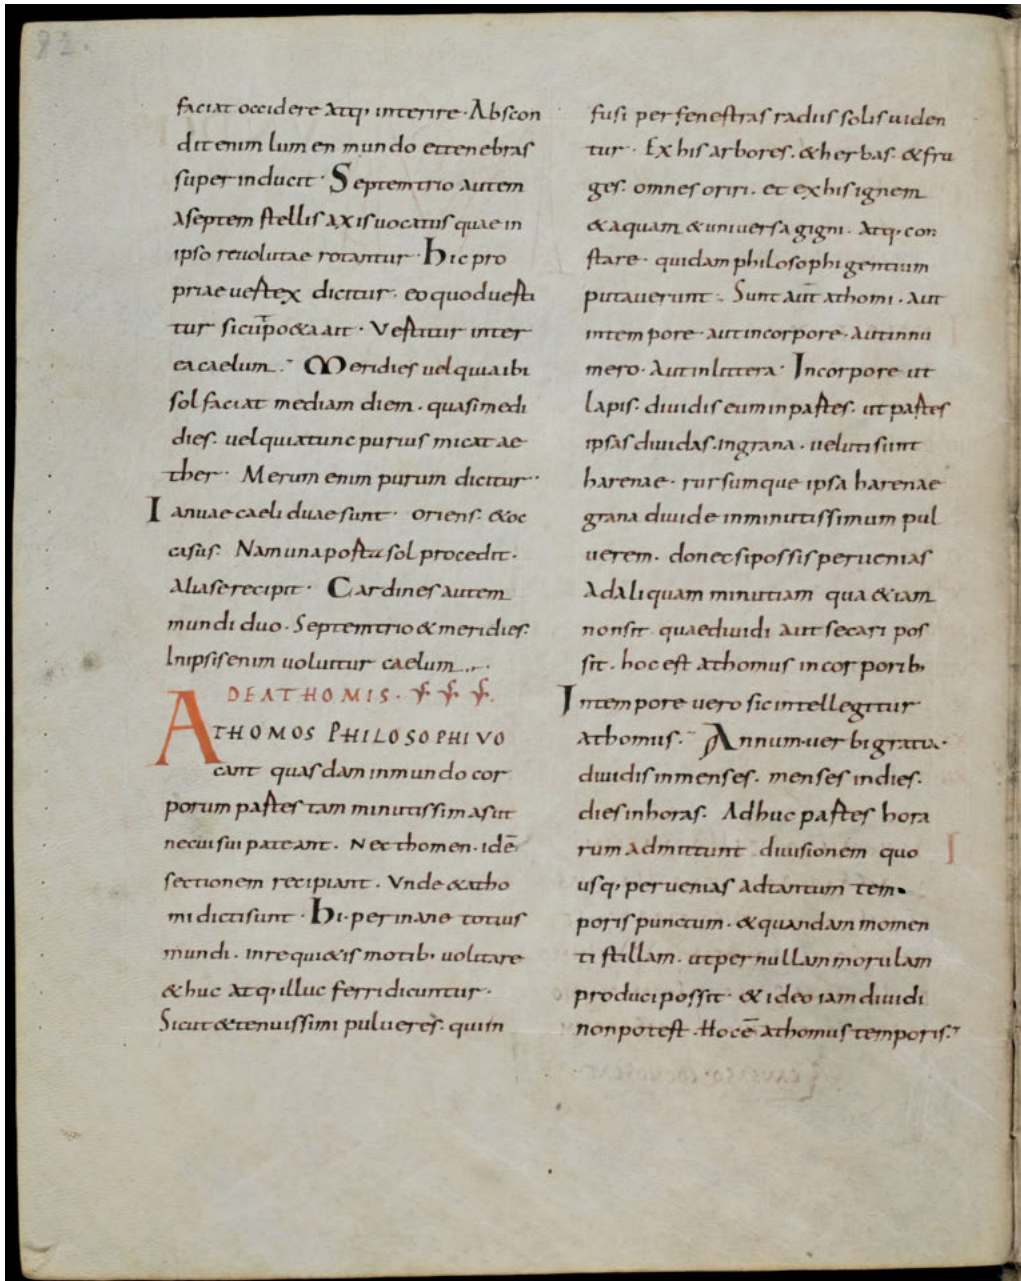 82.
faciat occidere atq; interire. Abscon
dit enim lumen mundo et tenebras
superinducit. Septemtrio autem
a septem stellis axis uocatus quae in
ipso reuolutae rotantur. hic pro
priae uertex dicitur. eo quod uerti
tur sicut poeta ait. Vertitur inter
ea caelum. Meridies uel quia ibi
sol faciat mediam diem. quasi medi
dies. uel quia tunc purius micat ae
ther. Merum enim purum dicitur.
Ianuae caeli duae sunt. oriens. & oc
casus. Nam una porta sol procedit.
Alia se recipit. Cardines autem
mundi duo. Septemtrio & meridies.
In ipsis enim uoluitur caelum.
DE ATHOMIS.
ATHOMOS PHILOSOPHI VO
cant quasdam in mundo cor
porum partes tam minutissimas ut
nec uisui pateant. Nec thomen. idē
sectionem recipiant. Vnde & atho
mi dicti sunt. hi. per inane totius
mundi. inrequi&is motib; uolitare
& huc atq; illuc ferri dicuntur.
Sicut & tenuissimi pulueres. qui in
fusi per fenestras radiis solis uiden
tur. Ex his arbores. & herbas. & fru
ges. omnes oriri. et ex his ignem
& aquam & uniuersa gigni. atq; con
stare. quidam philosophi gentium
putauerunt. Sunt aut̄ athomi. aut
in tempore. aut in corpore. aut in nu
mero. Aut in littera. In corpore ut
lapis. diuidis eum in partes. ut partes
ipsas diuidas. in grana. ueluti sunt
harenae. rursumque ipsa harenae
grana diuide in minutissimum pul
uerem. donec si possis peruenias
ad aliquam minutiam qua &iam
non sit quae diuidi aut secari pos
sit. hoc est athomus in corporib;
In tempore uero sic intellegitur
athomus. Annum uerbi gratia.
diuidis in menses. menses in dies.
dies in horas. Adhuc partes hora
rum admittunt diuisionem quo
usq; peruenias ad tantum tem
poris punctum. & quandam momen
ti stillam. ut per nullam morulam
produci possit. & ideo iam diuidi
non potest. Hoc ē athomus temporis.